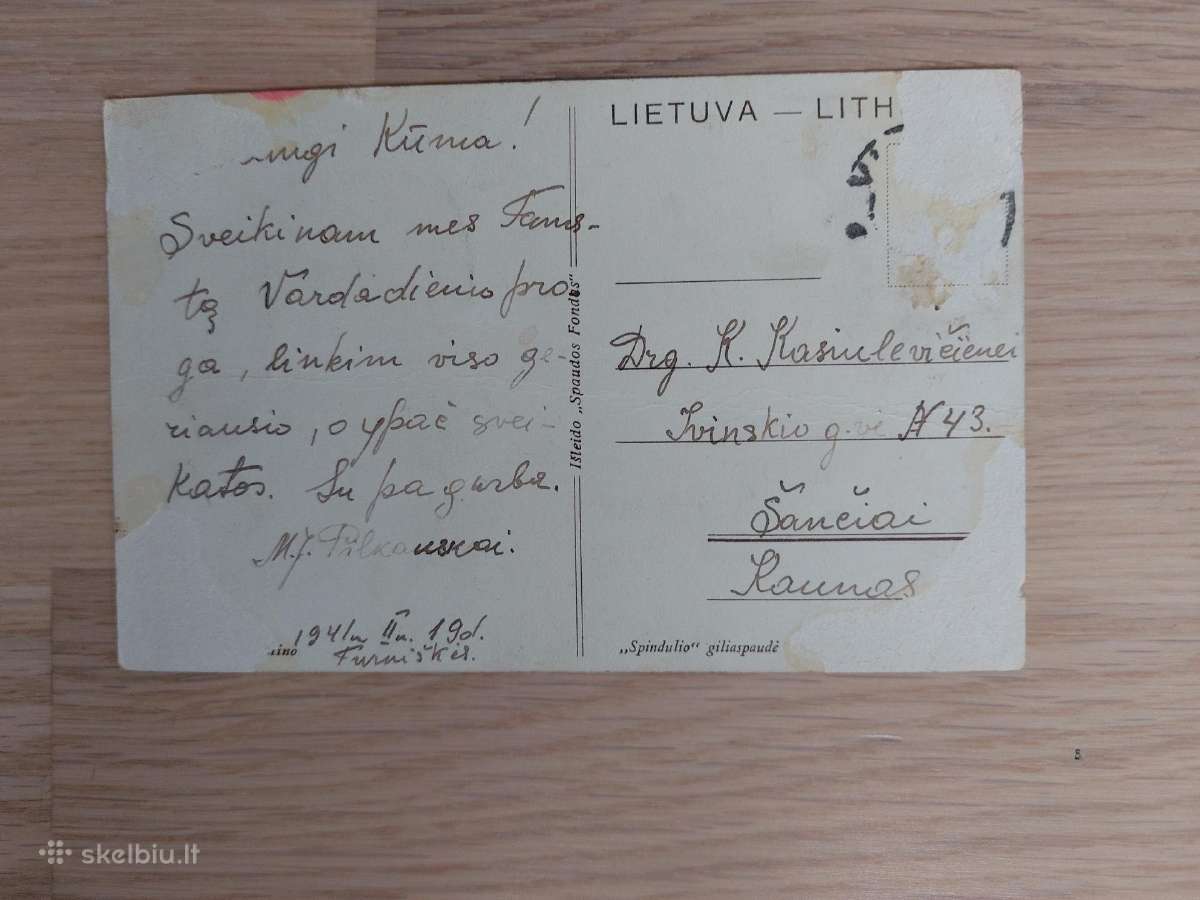 ngi Kūma!
Sveikinam mes Tams-
tą Vardadienio pro
ga, linkim viso ge-
riausio, o ypač svei-
katos. Su pagarba.
M.J. Pilkauskai.
1941m II m. 19 d.
Turniškis.
Išleido „Spaudos Fondas"
LIETUVA — LITH
Drg. K. Kasiulevičienei
Ivinskio g-vė № 43.
Šančiai
Kaunas
„Spindulio" giliaspaudė
skelbiu.lt